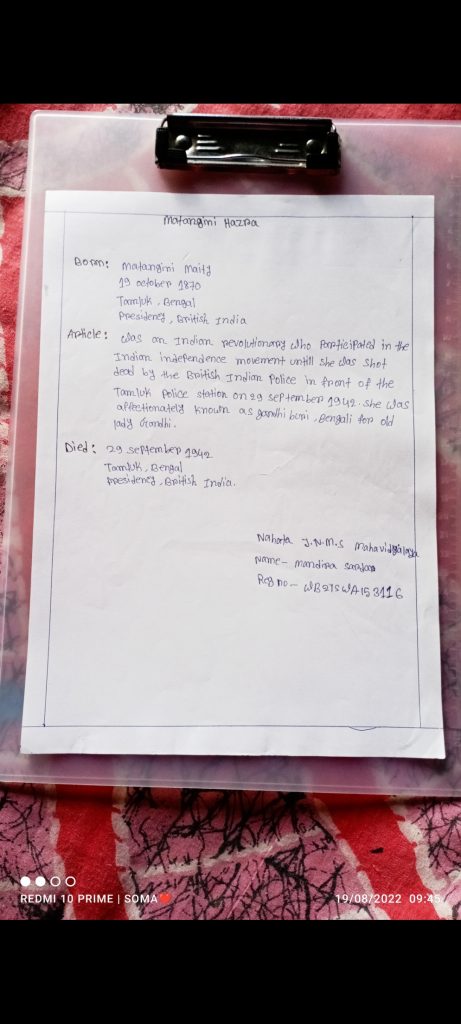 Matangini Hazra
Born: Matangini Maity
19 october 1870
Tamluk, Bengal
Presidency, British India
Article: Was an Indian revolutionary who participated in the
Indian independence movement untill she was shot
dead by the British Indian Police in front of the
Tamluk Police station on 29 september 1942. she was
affectionately known as gandhi buri, Bengali for old
lady Gandhi.
Died: 29 september 1942
Tamluk, Bengal
Presidency, British India.
Nahata J.N.M.S Mahavidyalaya
Name- Mandira
Reg no- WB21SWA153116
REDMI 10 PRIME | SOMA❤
19/08/2022 09:45